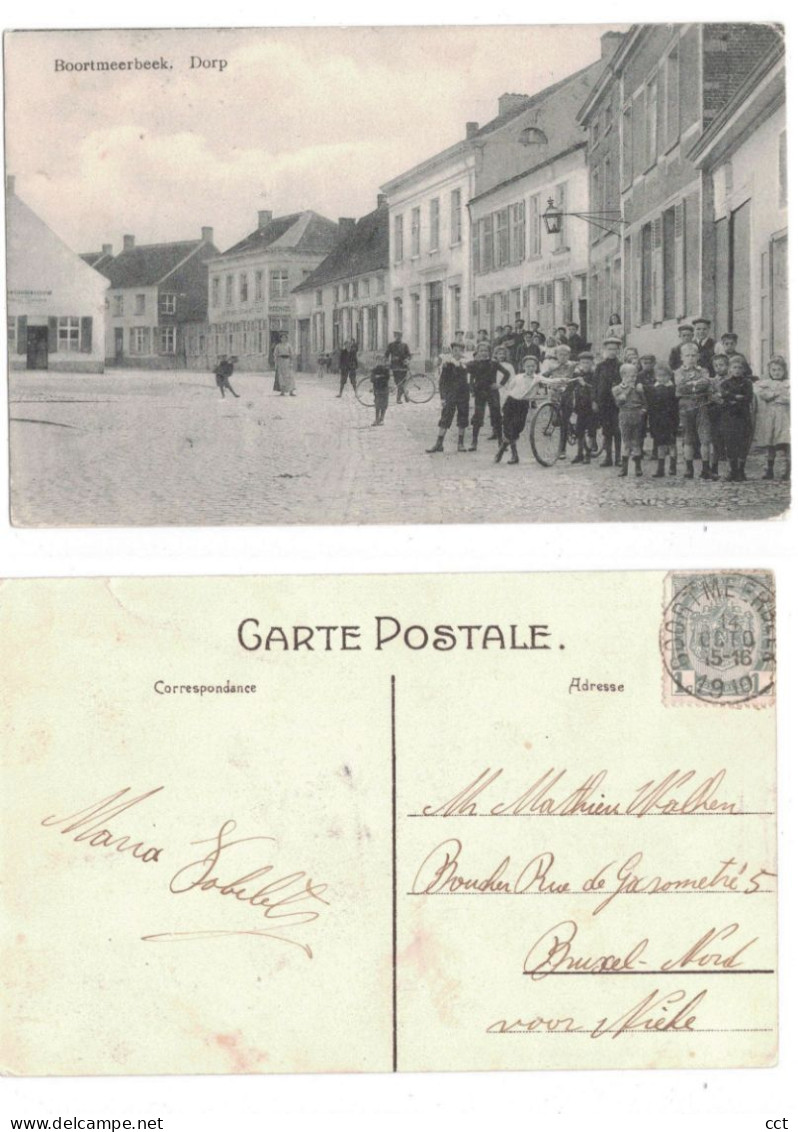 Boortmeerbeek, Dorp
CARTE POSTALE.
Correspondance
Adresse
BOORTMEERBEEK
14
OCTO
15-16
1910
1c
Maria
Mr Mathieu Walhen
Boucher Rue de Gasometré 5
Bruxel-Nord
voor Nieke
delcampe.net
cct